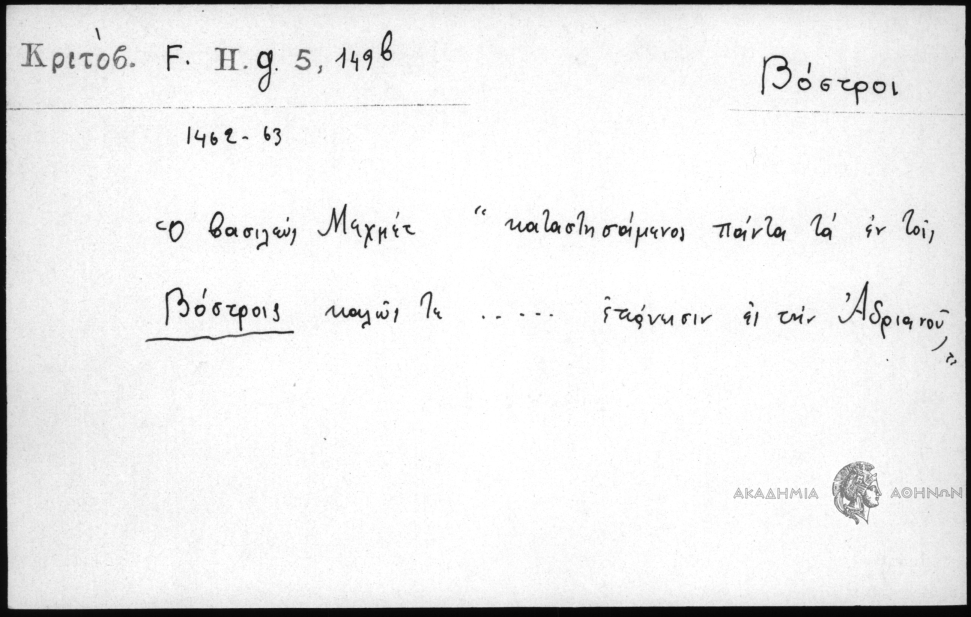 Κριτόβ. F. H. g. 5, 149b
Βόστροι
1462 - 63
Ὁ βασιλεύς Μεχμέτ “ καταστησάμενος πάντα τά ἐν τοῖς
Βόστροις καλῶς τε ..... ἐς τήν Ἀδριανοῦ,”
ΑΚΑΔΗΜΙΑ ΑΘΗΝΩΝ